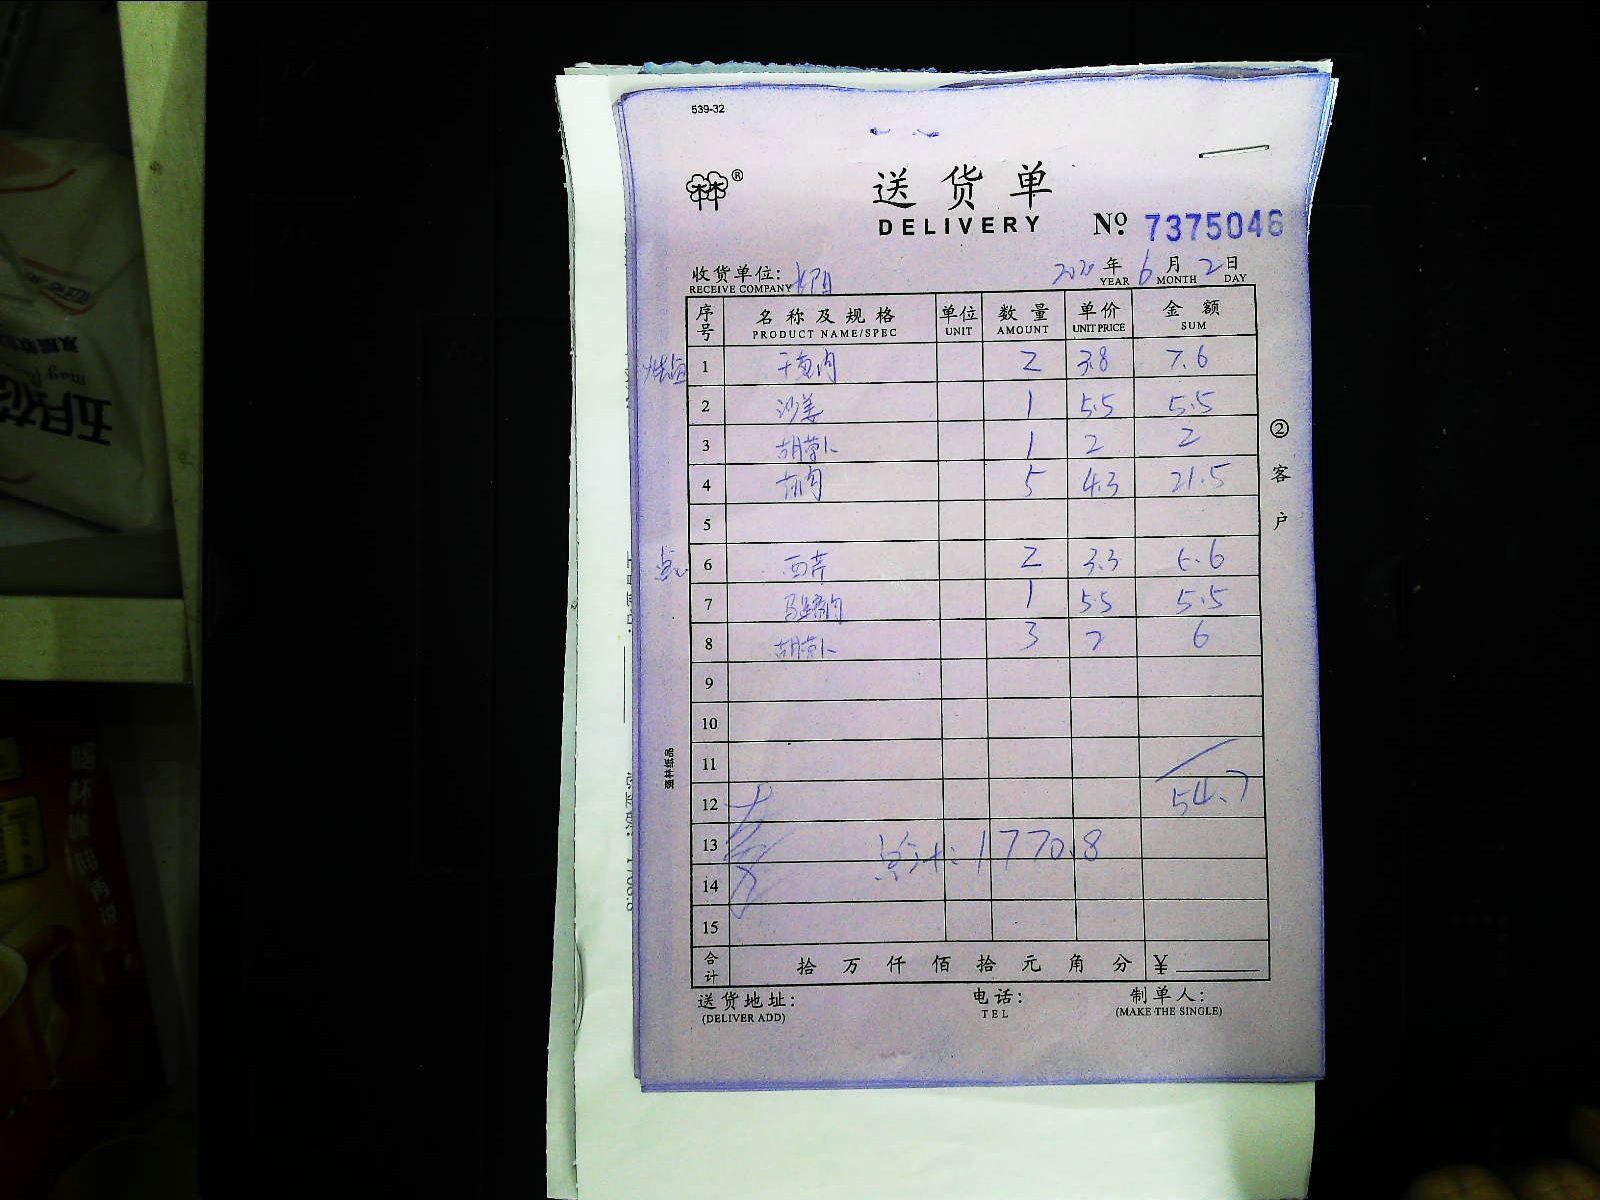 539-32
®
送货单
DELIVERY № 7375046
收货单位: 2020年6月2日
RECEIVE COMPANY YEAR MONTH DAY
序号 名称及规格 单位 数量 单价 金额
PRODUCT NAME/SPEC UNIT AMOUNT UNIT PRICE SUM
1 2 3.8 7.6
2 沙姜 1 5.5 5.5
3 胡萝卜 1 2 2
4 5 4.3 21.5
5
6 西芹 2 3.3 6.6
7 马蹄肉 1 5.5 5.5
8 胡萝卜 3 2 6
9
10
11
12 54.7
13 总计: 1770.8
14
15
合计 拾万仟佰拾元角分 ¥
送货地址: 电话: 制单人:
(DELIVER ADD) TEL (MAKE THE SINGLE)
②客户
强林纸品